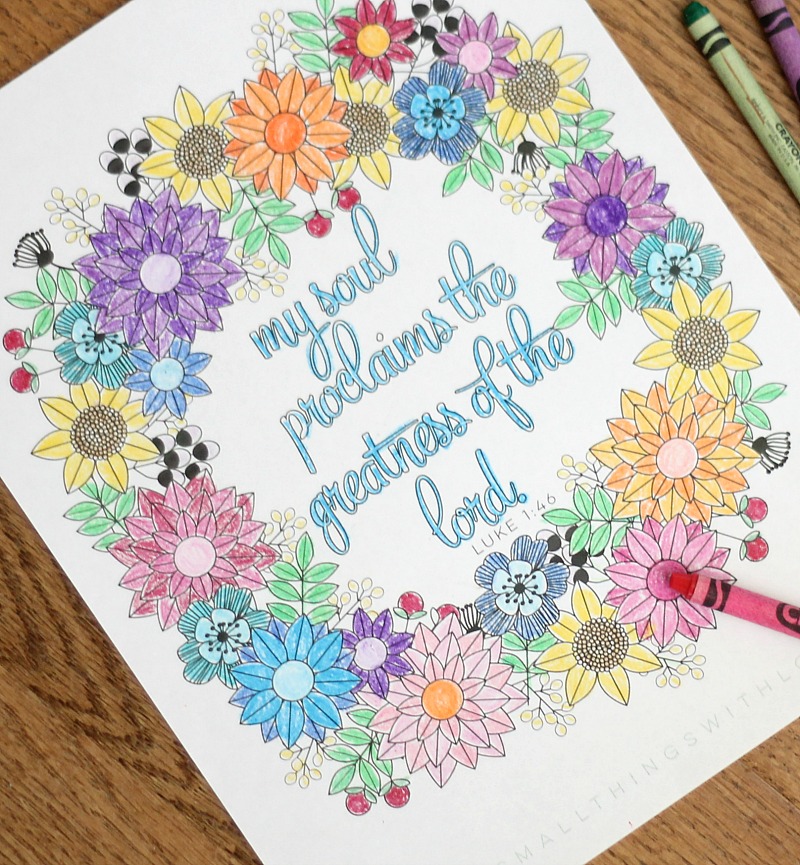 my soul
proclaims the
greatness of the
lord.
LUKE 1:46
CRAYO